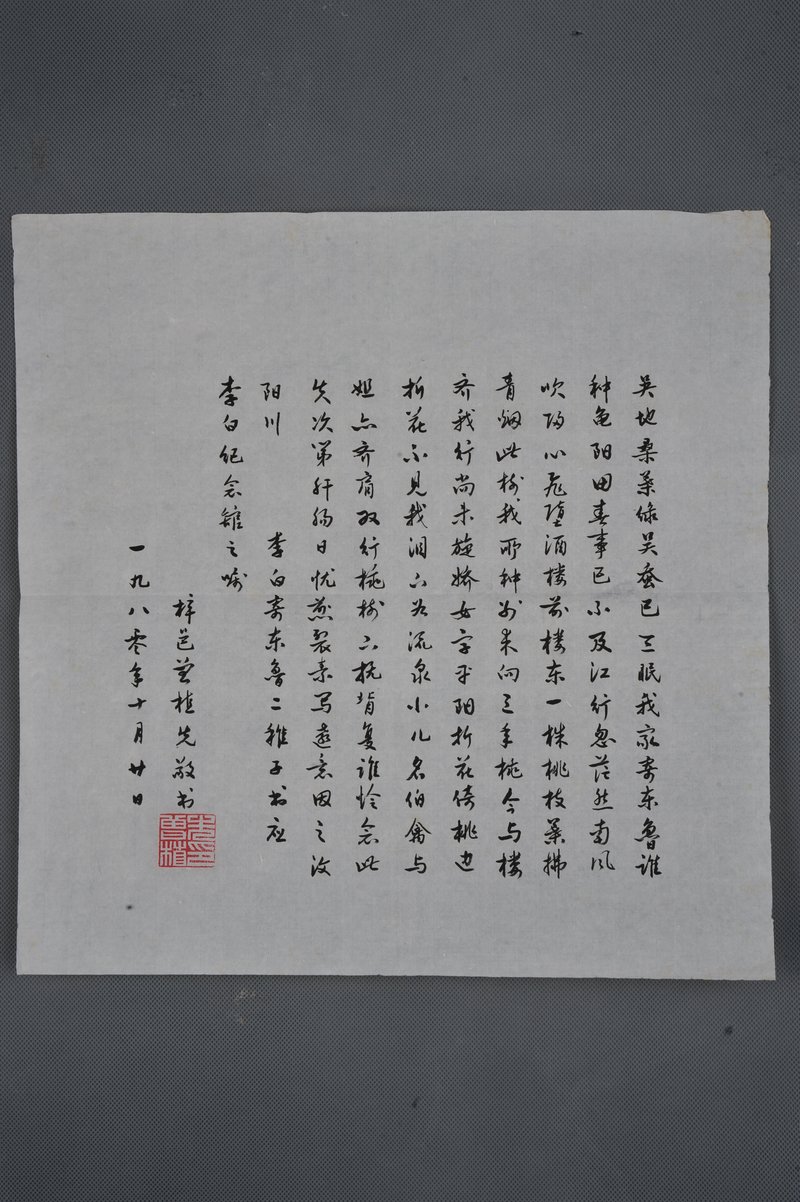 吴地桑葉绿吴蚕已三眠我家寄东鲁谁
种龟阳田春事已不及江行忽茫然南风
吹归心飞堕酒楼前楼东一株桃枝葉拂
青烟此树我所种别来向三年桃今与楼
齐我行尚未旋娇女字平阳折花倚桃边
折花不见我泪下如流泉小儿名伯禽与
姐亦齐肩双行桃树下抚背复谁怜念此
失次第肝肠日忧煎裂素写遠意因之汶
阳川 李白寄东鲁二稚子书应
李白纪念馆之嘱
梓邑曾植先敬书
一九八零年十月廿日
曾植先印